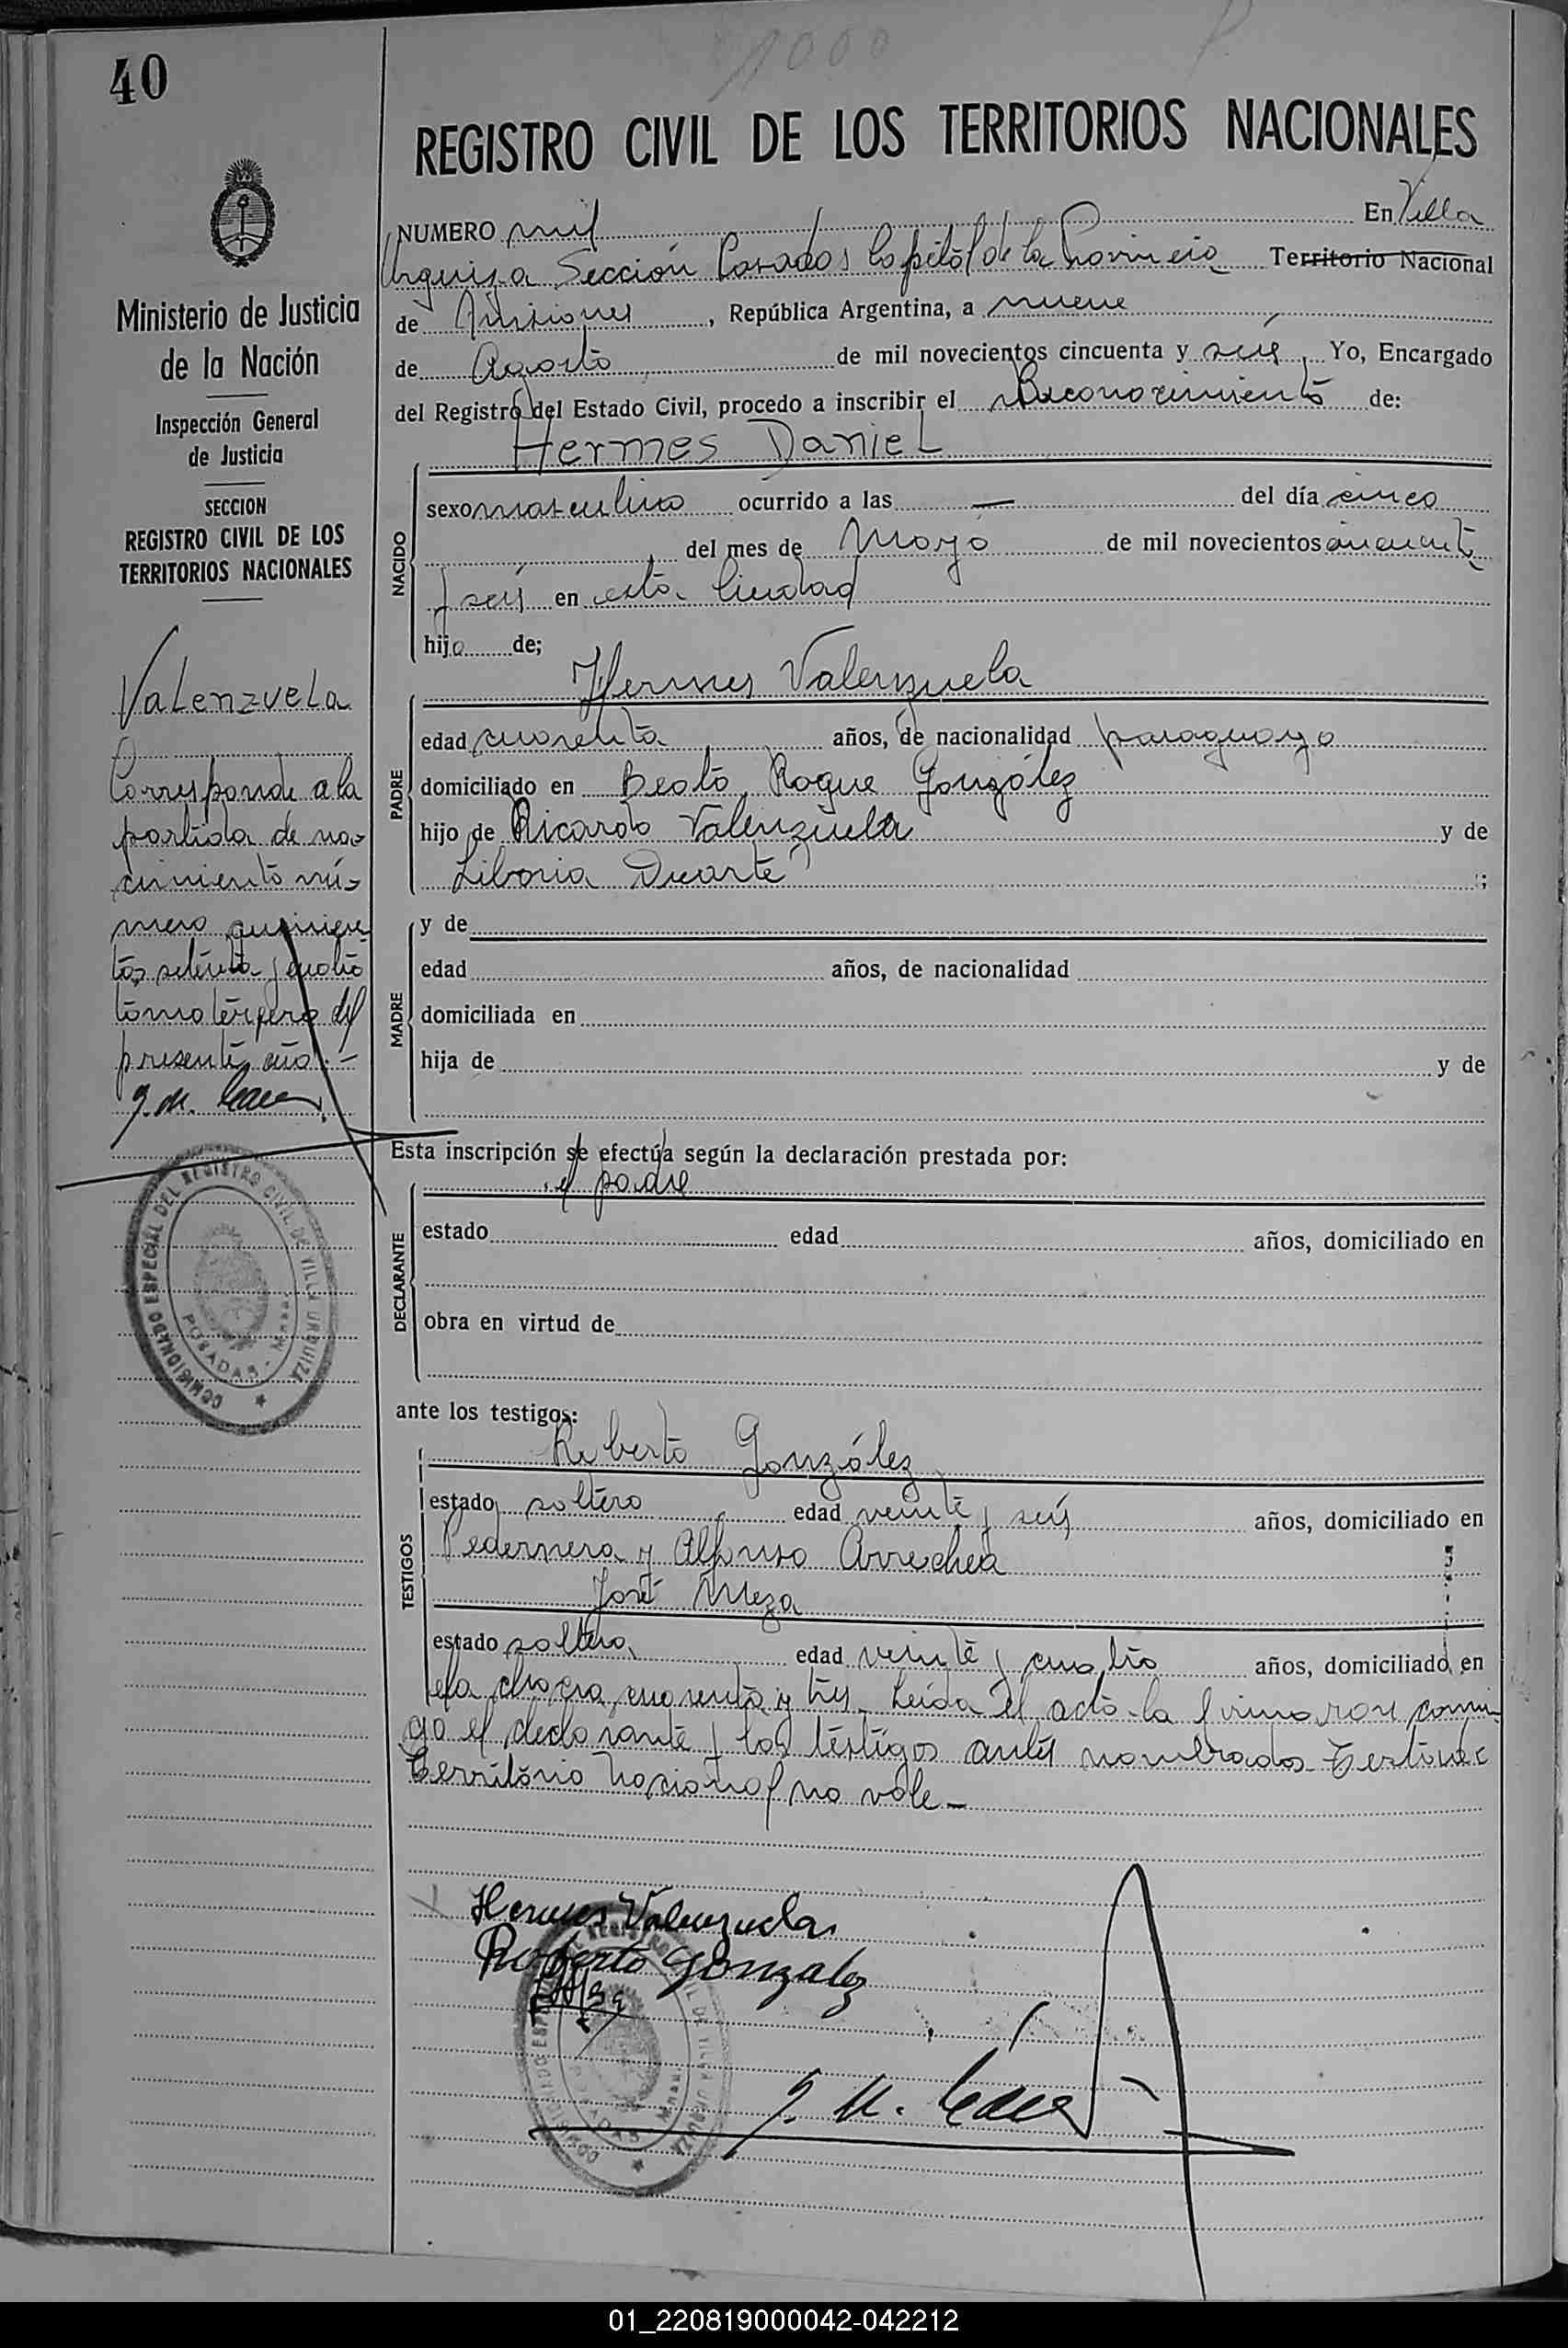 1000
40
REGISTRO CIVIL DE LOS TERRITORIOS NACIONALES
NUMERO mil En Villa
Urquiza Sección Posadas Capital de la Provincia Territorio Nacional
de Misiones, República Argentina, a nueve
de Agosto de mil novecientos cincuenta y seis, Yo, Encargado
del Registro del Estado Civil, procedo a inscribir el Reconocimiento de:
Hermes Daniel
NACIDO
sexo masculino ocurrido a las — del día cinco
del mes de Mayo de mil novecientos cincuenta
y seis en esta Ciudad
hijo de;
Hermes Valenzuela
PADRE
edad cuarenta años, de nacionalidad paraguayo
domiciliado en Beato Roque González
hijo de Ricardo Valenzuela y de
Liboria Duarte ;
MADRE
y de
edad años, de nacionalidad
domiciliada en
hija de y de
Esta inscripción se efectúa según la declaración prestada por:
el padre
DECLARANTE
estado edad años, domiciliado en
obra en virtud de
ante los testigos:
Roberto González
TESTIGOS
estado soltero edad veinte y seis años, domiciliado en
Pedernera y Alfonso Arrechea
José Meza
estado soltero edad veinte y cuatro años, domiciliado en
la chacra cuarenta y tres. Leída el acta la firmaron conmi-
go el declarante y los testigos antes nombrados Testado:
Territorio Nacional no vale—
Hermes Valenzuela
Roberto Gonzalez
J. M.
Ministerio de Justicia
de la Nación
Inspección General
de Justicia
SECCION
REGISTRO CIVIL DE LOS
TERRITORIOS NACIONALES
Valenzuela
Corresponde a la
partida de na-
cimiento nú-
mero quinien-
tos setenta y cuatro
tomo tercero del
presente año.—
J. M.
COMISIONADO ESPECIAL DEL REGISTRO CIVIL DE VILLA URQUIZA
POSADAS - Mnes.
COMISIONADO ESPECIAL DEL REGISTRO CIVIL DE VILLA URQUIZA
POSADAS - Mnes.
01_220819000042-042212